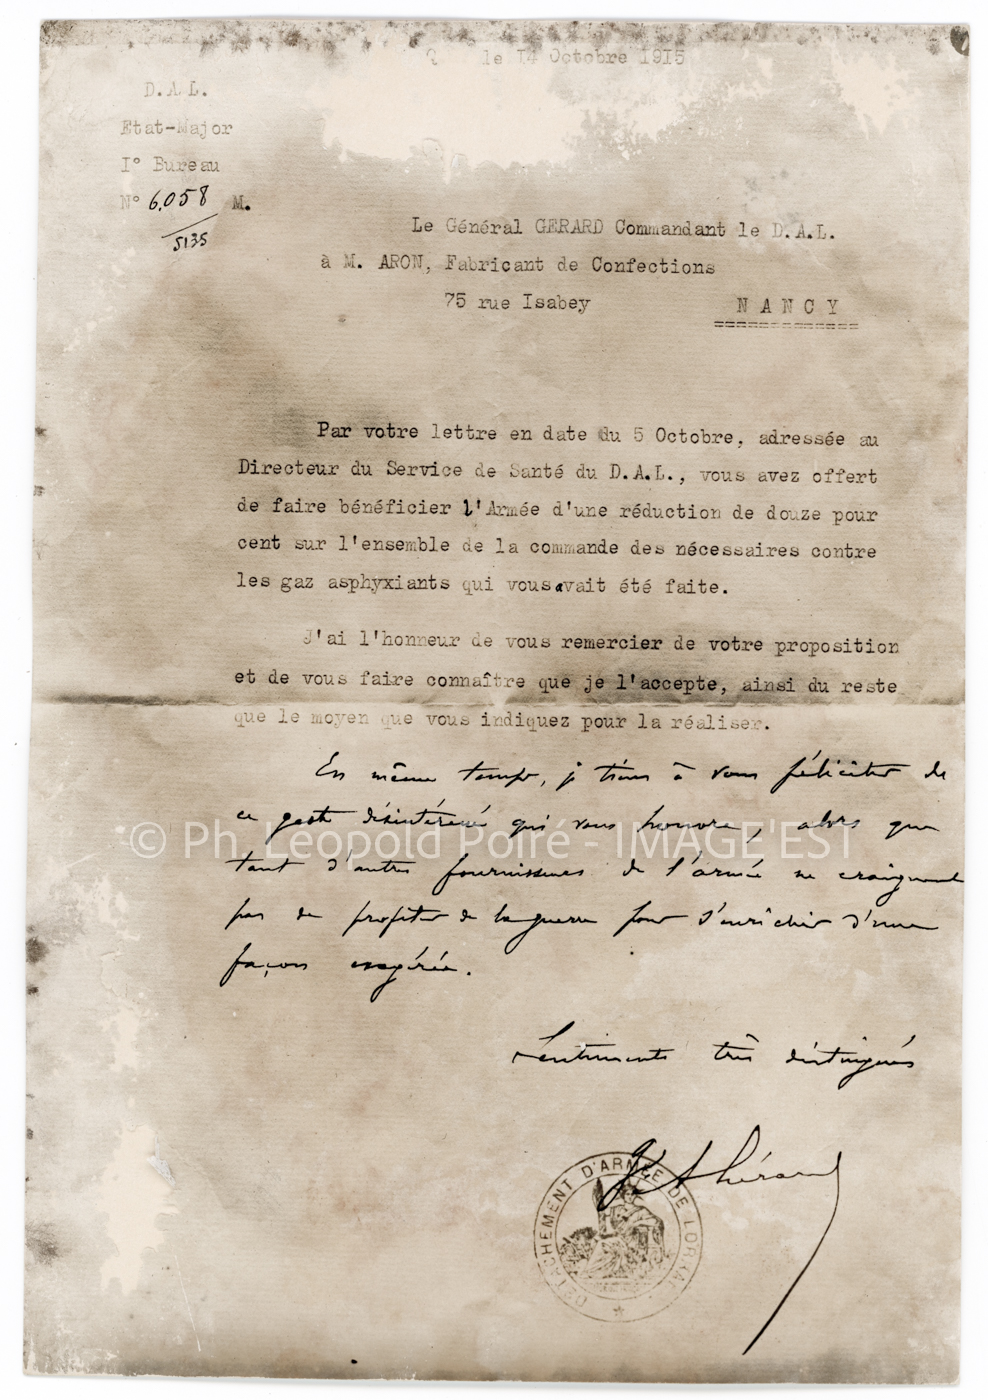 le 14 Octobre 1915
D.A.L.
Etat-Major
I° Bureau
N° 6.058 M.
5135
Le Général GERARD Commandant le D.A.L.
à M. ARON, Fabricant de Confections
75 rue Isabey N A N C Y
===============
Par votre lettre en date du 5 Octobre, adressée au
Directeur du Service de Santé du D.A.L., vous avez offert
de faire bénéficier l'Armée d'une réduction de douze pour
cent sur l'ensemble de la commande des nécessaires contre
les gaz asphyxiants qui vous avait été faite.
J'ai l'honneur de vous remercier de votre proposition
et de vous faire connaître que je l'accepte, ainsi du reste
que le moyen que vous indiquez pour la réaliser.
En même temps, je tiens à vous féliciter de
ce geste désintéressé qui vous honore, alors que
© Ph. Léopold Poiré - IMAGE'EST
tant d'autres fournisseurs de l'armée ne craignent
pas de profiter de la guerre pour s'enrichir d'une
façon exagérée.
Sentiments très distingués
Gérard
DETACHEMENT D'ARMÉE DE LORRAINE